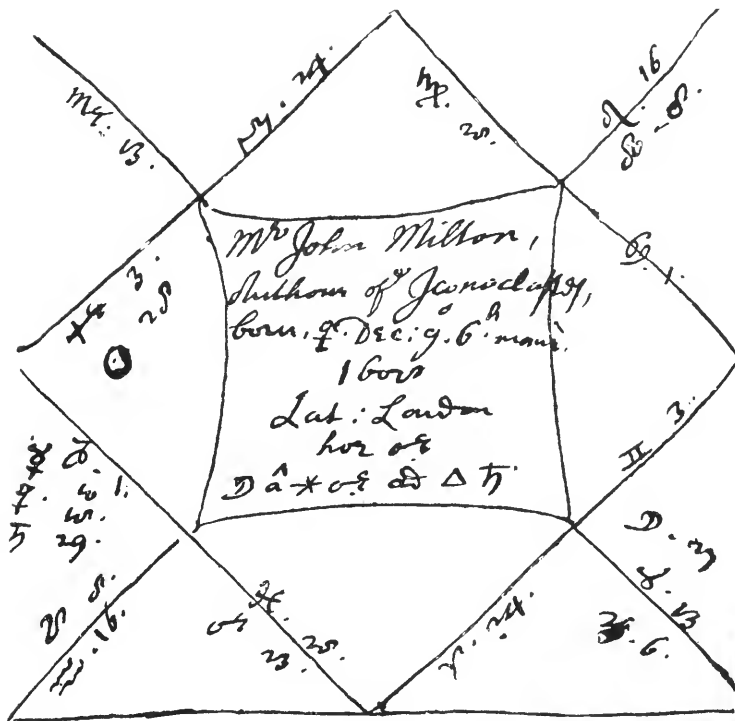 ♏. 13.
♎. 24.
♍. 20.
♌. 16
☊ . 8.
♋. 1.
♐ 3.
☉
Mr John Milton,
Authour of ye Iconoclastes,
born, ♀. Dec: 9. 6h mane.
1608
Lat: London
hor ♂
☽ â ⚹ ♂ ad △ ♄
♊ 3.
♑. 1.
♄ 29.
☋ 8.
♒. 16.
♓. 20.
♂ 23
♈. 24.
☽ .
♉. 13
6.